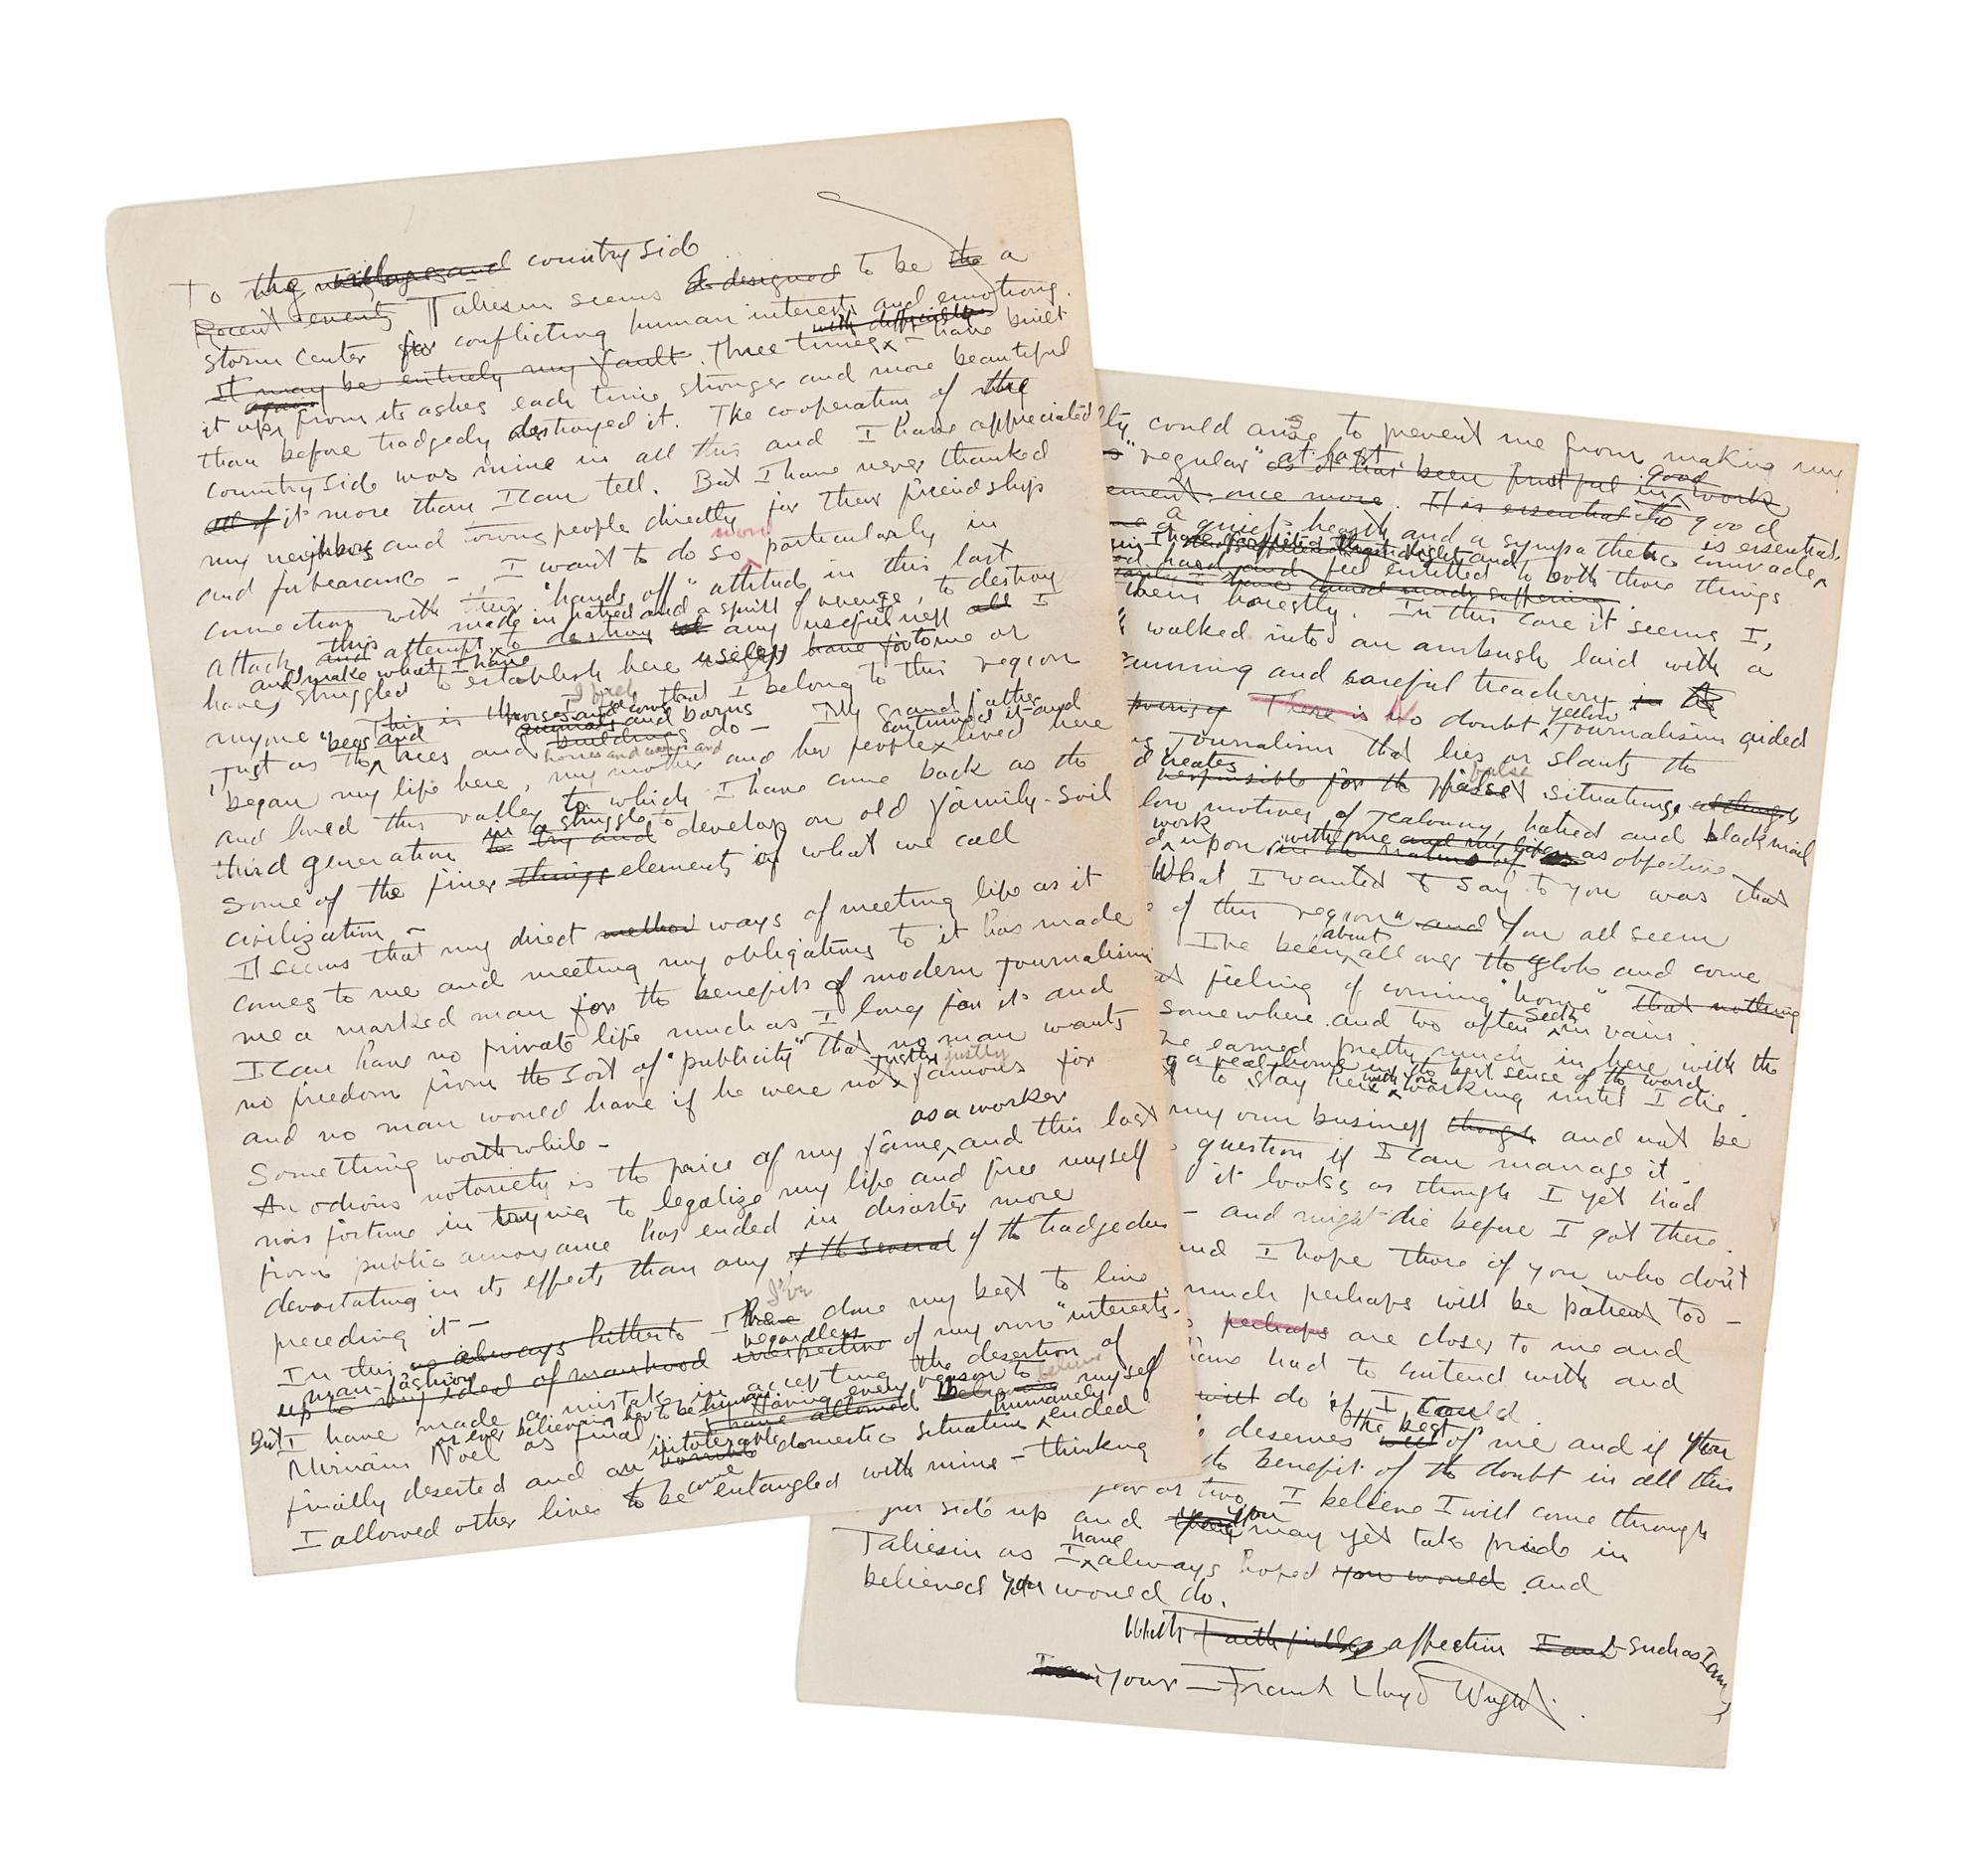 To the villages and countryside
Recent events Taliesin seems designed to be the a
storm center for conflicting human interests and emotions.
It may be entirely my fault. Three times with difficulty - have built
it up again from its ashes each time stronger and more beautiful
than before tradgedy destroyed it. The cooperation of the
countryside was mine in all this and I have appreciated
all of it more than I can tell. But I have never thanked
my neighbors and young people directly for their friendship
and forbearance - I want to do so now particularly in
connection with their "hands off" attitude in this last
attack, and this attempt made in hatred and a spirit of revenge, to destroy
to destroy all any usefulness all I
have struggled to establish here and make what I have useless to me or
anyone I feel I belong to this region
Just as the bees and trees and horses and cows and barns do - My Grandfather
began my life here, my mother and her people continued it and lived here
and loved this valley to which I have come back as the
third generation to try and in a struggle to develop on old family-soil
some of the finer things elements of what we call
civilization -
It seems that my direct method ways of meeting life as it
comes to me and meeting my obligations to it has made
me a marked man for the benefits of modern journalism
I can have no private life much as I long for it and
no freedom from the sort of "publicity" that no man wants
and no man would have if he were not justly justly famous for
Something worthwhile -
An odious notoriety is the price of my fame as a worker and this last
misfortune in trying to legalize my life and free myself
from public annoyance has ended in disaster more
devastating in its effects than any of the several of the tradgedies
preceding it -
In this as always hitherto I have I've done my best to live
man-fashion up to my ideal of manhood irrespective regardless of my own "interests".
But I have made a mistake in accepting the desertion of
Miriam Noel as final, or ever believing her to be human Having every reason to believe myself
finally deserted and an horrible intolerable domestic situation humanely ended
I allowed other lives to become entangled with mine - thinking
could arise to prevent me from making my
"regular" at last as it has been fruitful in good work
once more. It is essential to good
a quiet hearth and a sympathetic comrade is essential.
hard and feel entitled to both those things
them honestly. In this case it seems I,
walked into an ambush laid with a
cunning and careful treachery in
There is No doubt yellow Journalism aided
Journalism that lies or slants the
creates responsible for the false false situations
low motives of jealousy, hatred and blackmail
work upon with me and my life as objective
What I wanted to say to you was that
of this region" and You all seem
I've been about all over the globe and come
feeling of coming "home" that nothing
somewhere and too often seek in vain
earned pretty much in here with the
a real home in the best sense of the word
to stay here with you working until I die.
my own business though and not be
question if I can manage it.
it looks as though I yet had
- and might die before I got there.
and I hope those of you who don't
much perhaps will be patient too -
perhaps are closer to me and
have had to contend with and
will do if I could
deserves the best of me and if you
the benefit of the doubt in all this
year or two, I believe I will come through
side up and you may yet take pride in
Taliesin as I have always hoped you would and
believed you would do.
With Faithfully affection I am such as I am,
I am Your - Frank Lloyd Wright.